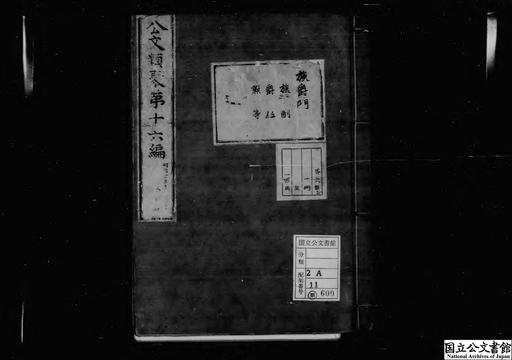 公文類聚第十六編
族爵門
族制
爵位
勲等
国立公文書館
分類
配架番号
2 A
11
類 600
国立公文書館
National Archives of Japan